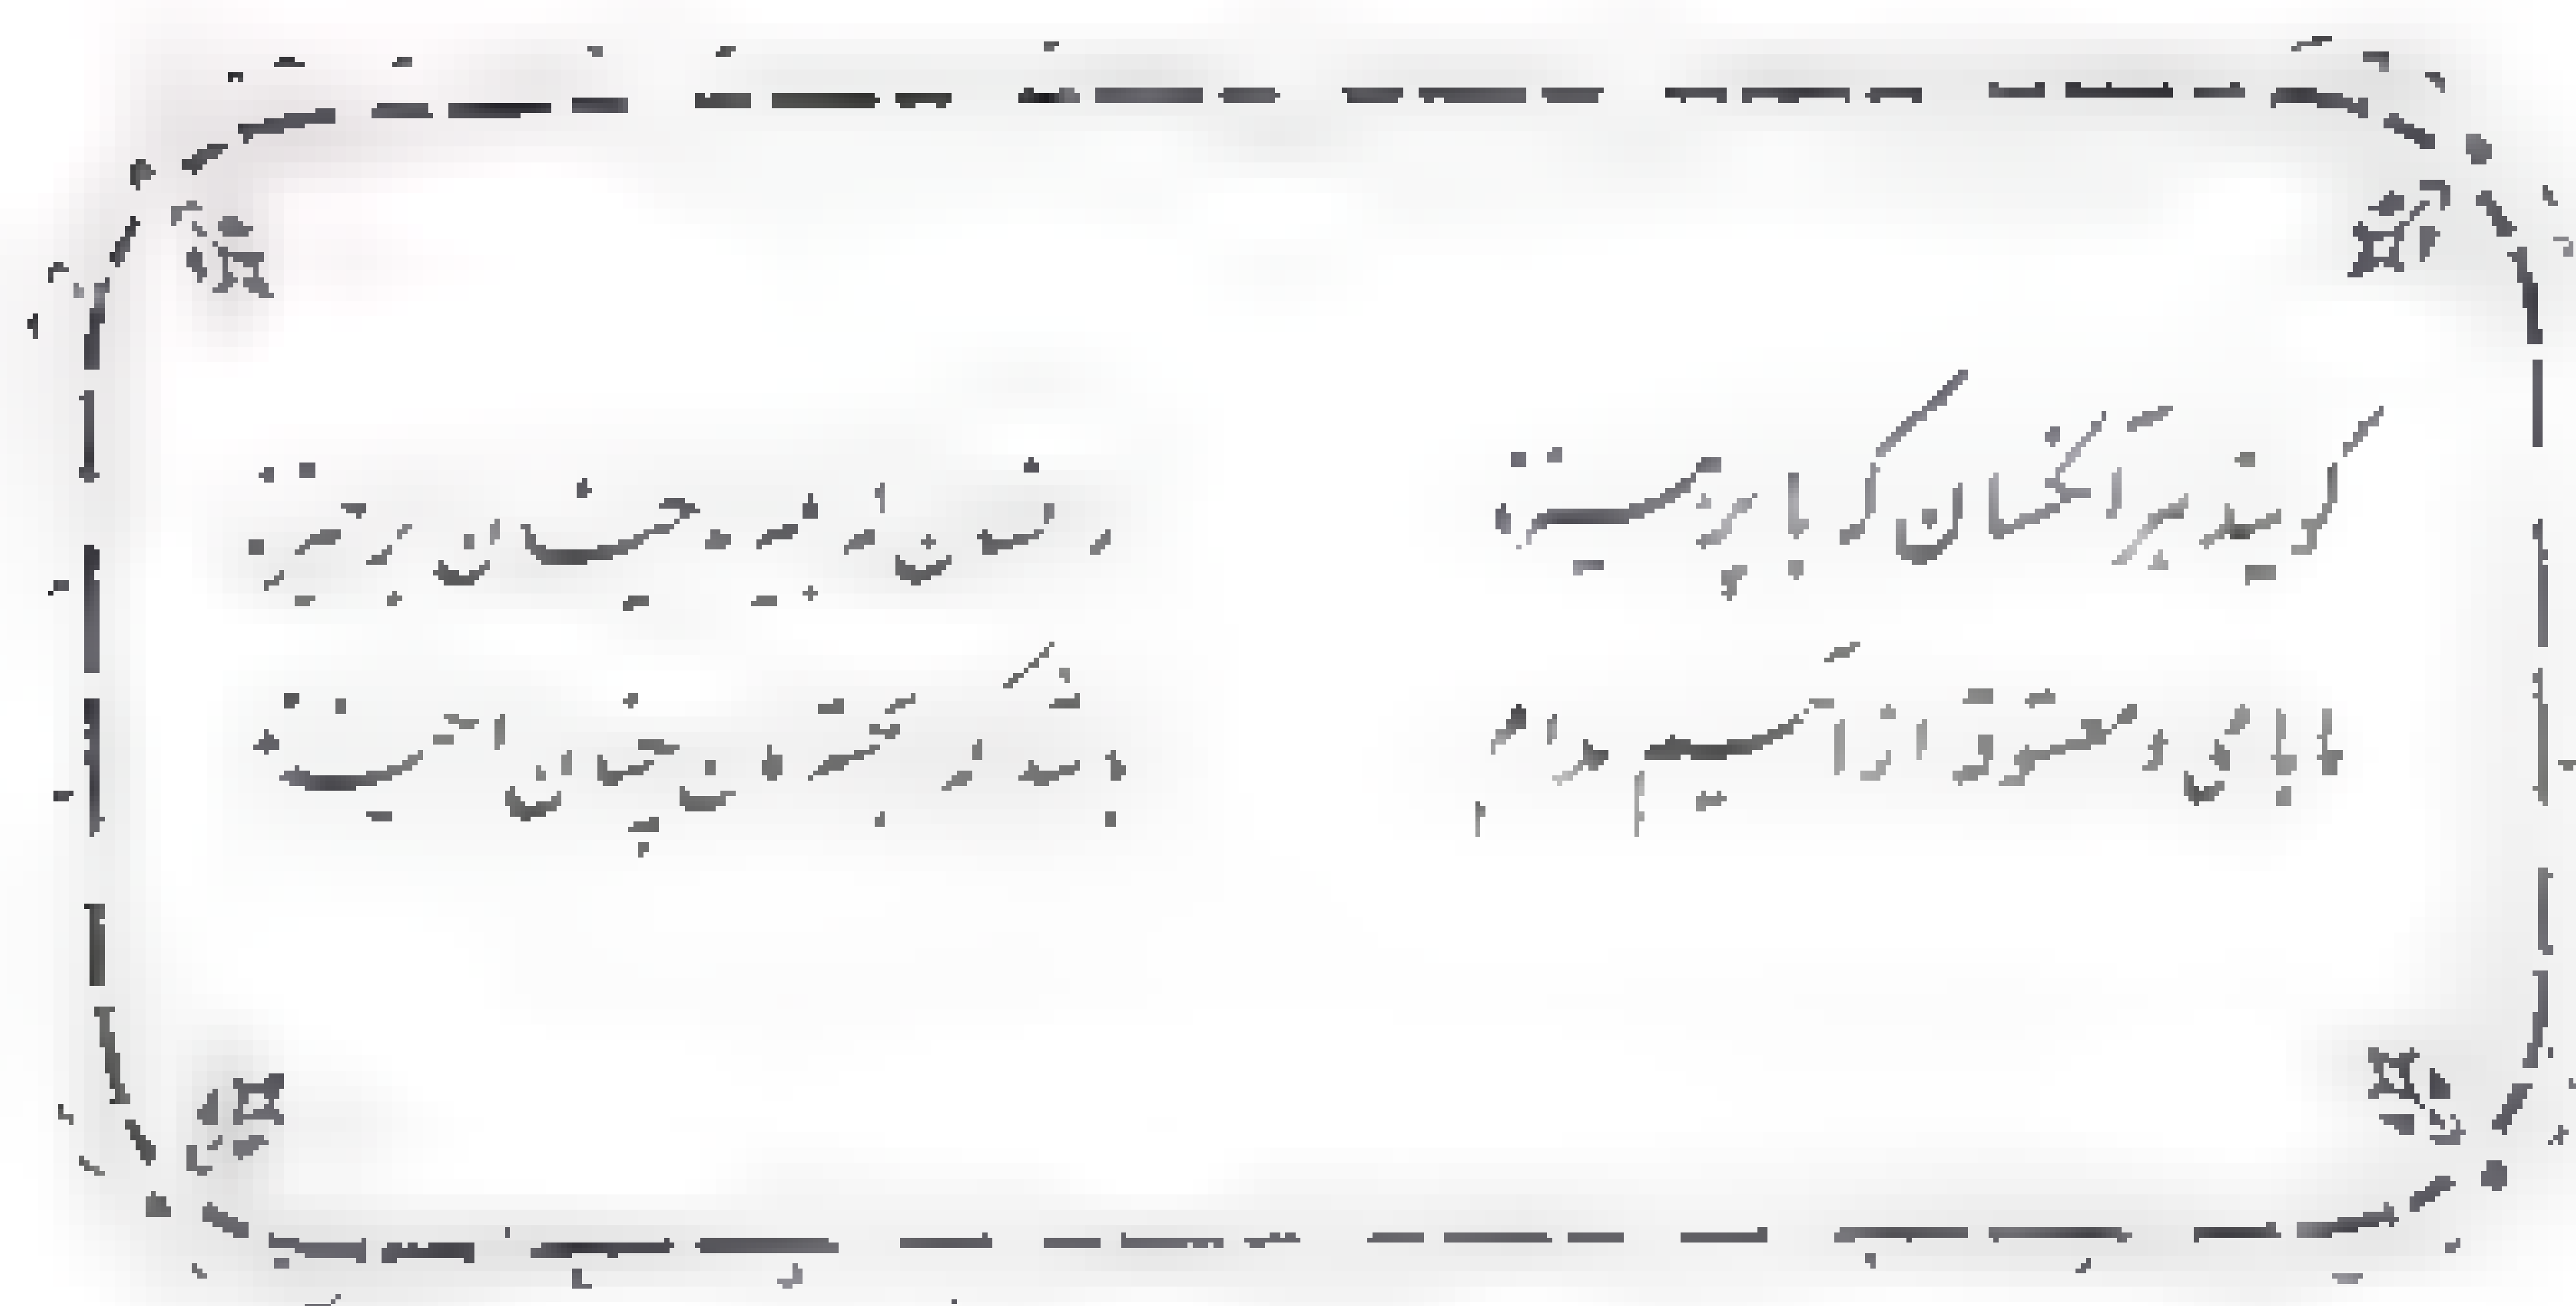 گویند هر آنکسان که با پرهیزند
زانسان که بمیرند چنان برخیزند
ما با می و معشوقه از آنیم مدام
باشد که بحشرمان چنان انگیزند